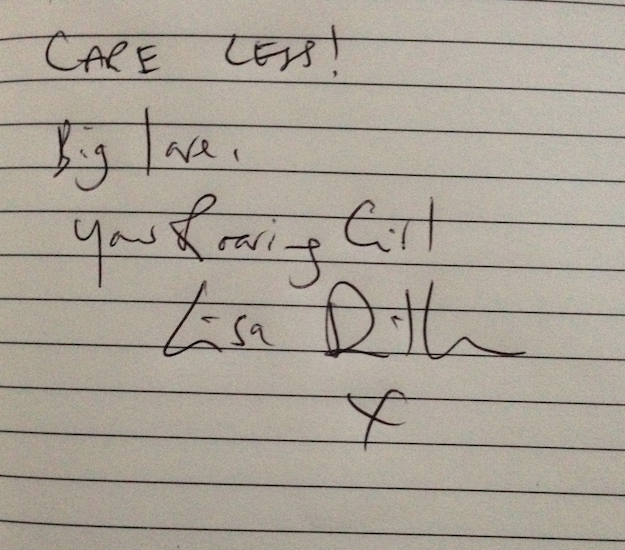 CARE LESS!
Big love.
your Roaring Girl
Lisa Dillon
x